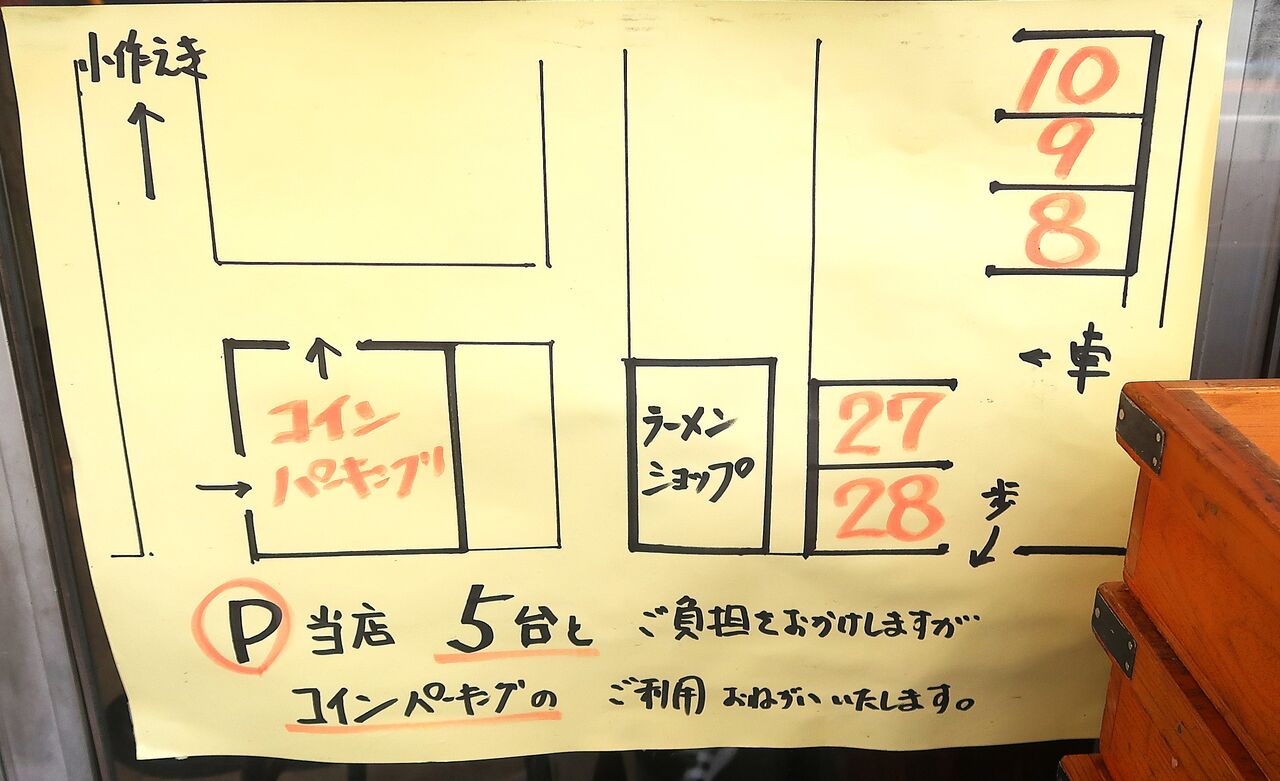 小作えき
10
9
8
車
コイン
パーキング
ラーメン
ショップ
27
28
歩
P 当店 5台と ご負担をおかけしますが…
コインパーキングの ご利用おねがいいたします。